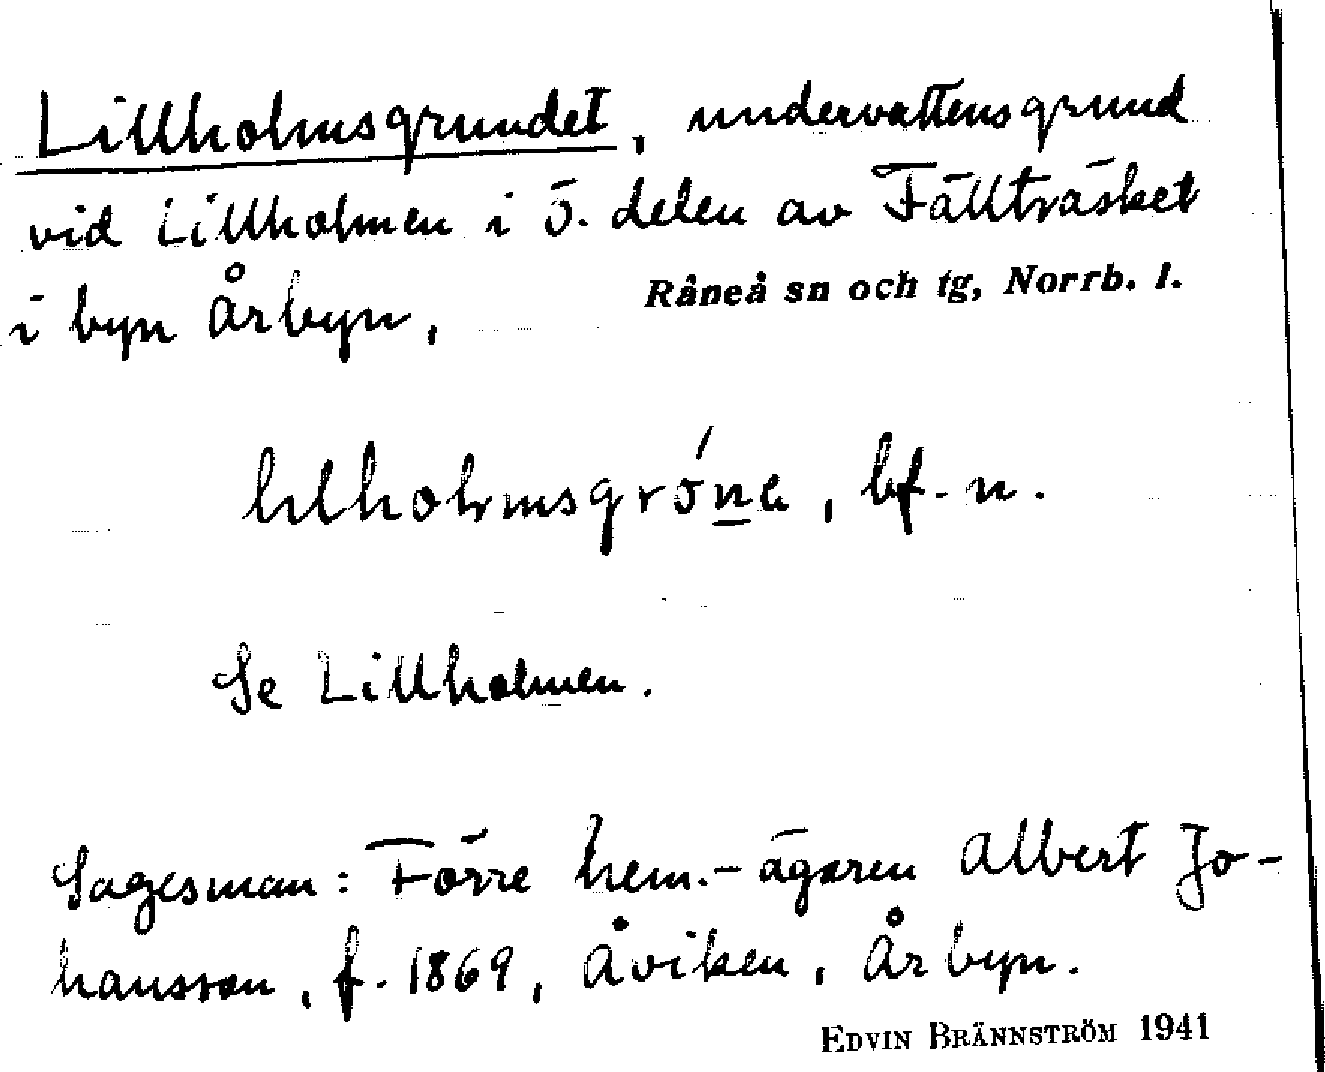 Lillholmsgrundet, undervattensgrund
vid Lillholmen i ö. delen av Fällträsket
i byn Årbyn,
Råneå sn och tg, Norrb. l.
lılholmsgrón̲e, bf. n.
Se Lillholmen.
Sagesman: Förre hem.-ägaren Albert Jo-
hansson, f. 1869, Åviken, Årbyn.
EDVIN BRÄNNSTRÖM 1941